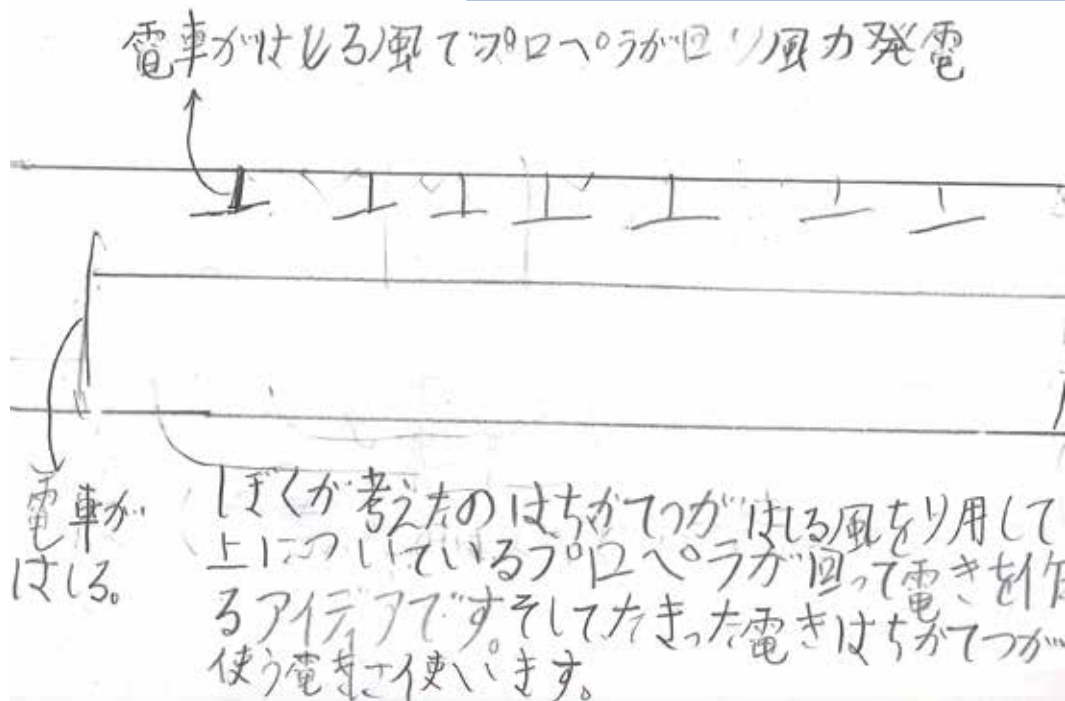 電車がはしる風でプロペラが回り風力発電
電車が
はしる。
ぼくが考えたのはちかてつがはしる風をり用して
上についているプロペラが回って電きを作
るアイデアですそしてたまった電きはちかてつが
使う電きに使います。